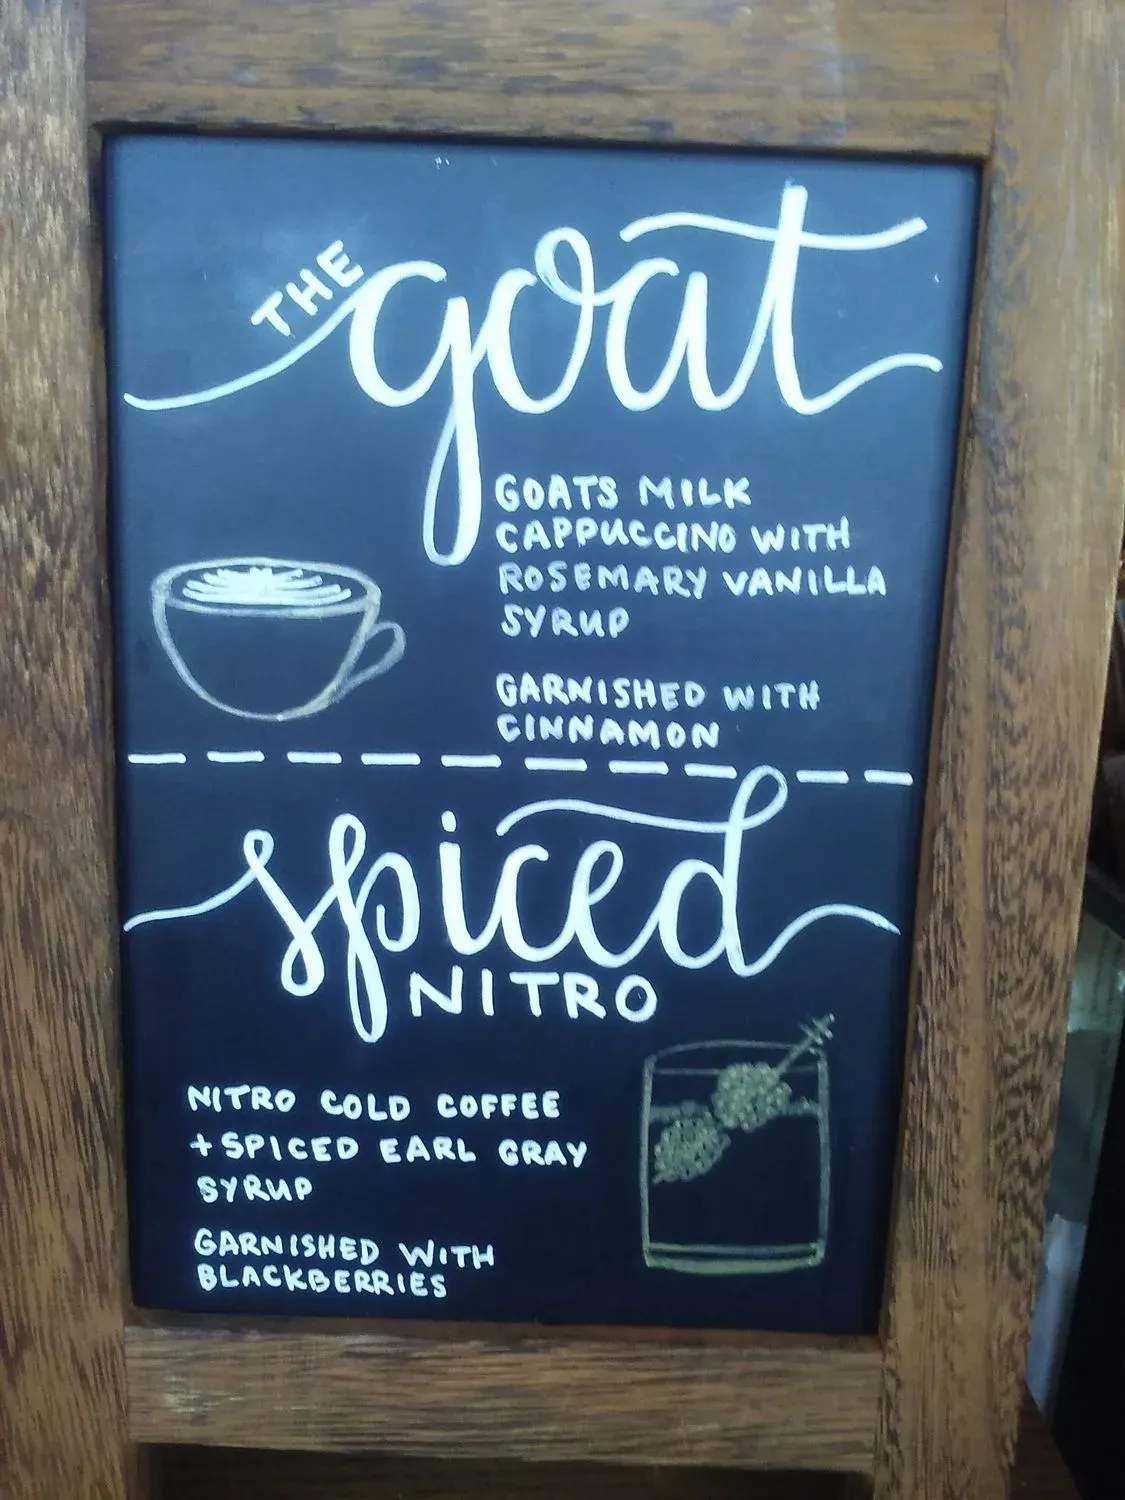 THE goat
GOATS MILK
CAPPUCCINO WITH
ROSEMARY VANILLA
SYRUP
GARNISHED WITH
CINNAMON
spiced
NITRO
NITRO COLD COFFEE
+ SPICED EARL GRAY
SYRUP
GARNISHED WITH
BLACKBERRIES